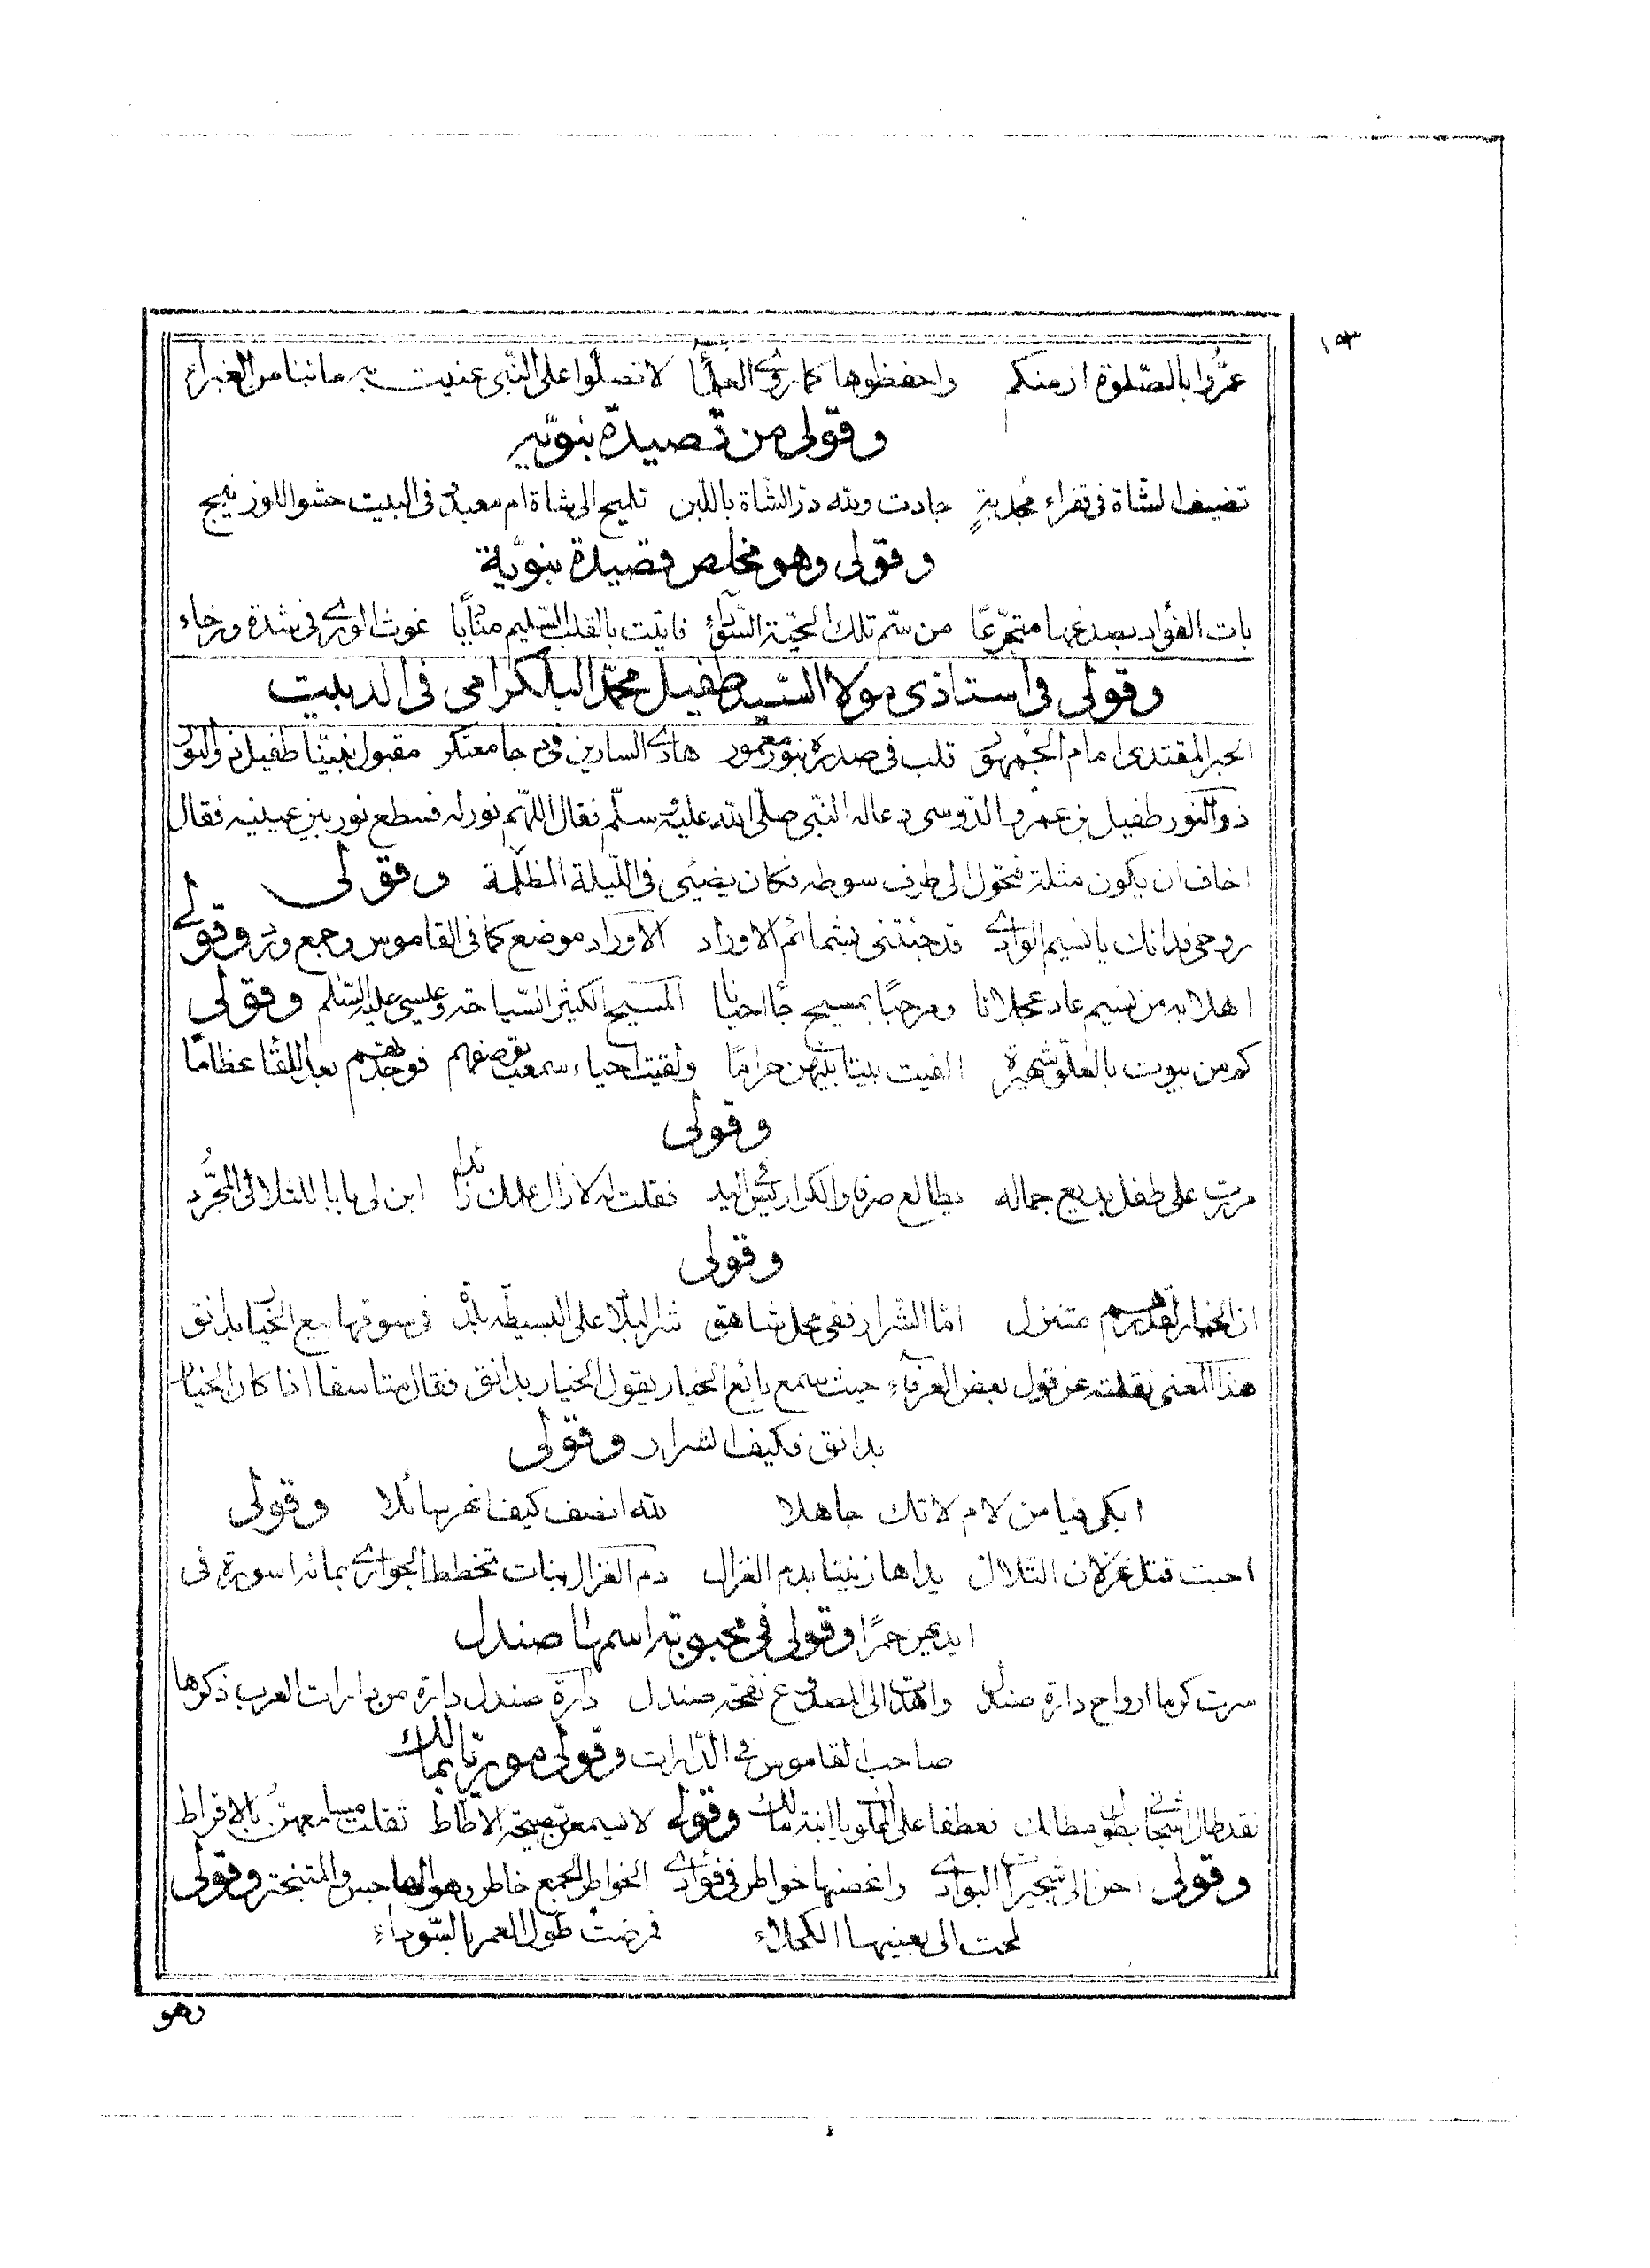 ١٥٣
عمّروا بالصّلوة ازمنكم واحفظوها كما روى العلماء لا تصلّوا على النّبى عنيت به ما نبا من الغبراء
وقولى من قصيدة نبويّه
تضيفا لشاة فى قفراء مجدبةٍ جادت ولله درّ الشاة باللبن تلميح الى شاة ام معبد و فى البيت حشو اللوزينج
وقولى وهو مخلص قصيدة نبويّة
بات الفؤاد بصدغها متجرّعًا من سمّ تلك الحيّة السّوداء فاتيت بالقلب السّليم منابا غوث الورى فى شدة ورخاء
وقولى فى استاذى مولا السّيد طفيل محمّد البلكرامى فى الدبيت
الحبر المقتدى امام الجمهور قلب فى صدره بنور معمور هادى السارين فى دجا معتكر مقبول نبيّنا طفيل ذو النور
ذو النور طفيل بن عمرو الدّوسى دعا له النّبى صلّى الله عليه وسلّم فقال اللّهم نور له فسطع نور بين عينيه فقال
اخاف ان يكون مثلة فتحول الى طرف سوطه فكان يضيئى فى اللّيلة المظلمة وقولى
روحى فدائك يا نسيم الوادى قد جئتنى بشمائم الاوراد الاوراد موضع كما فى القاموس وجمع ورد وقولى
اهلا به من نسيم عاد عجلانا ومرحبًا بمسيح جاء احيانا المسيح الكثير السّياحة وعيسى عليه السّلم وقولى
كم من بيوت بالعلو شهيرة الفيت بيتا بينهن حراما ولقيت احياء سمعت بوصفهم فوجدتهم بعد اللقاء عظاما
وقولى
مررت على طفل بديع جماله يطالع صرفا والكراريس فى اليد فقلت له لا زال علمك زائدا ابن لى بابا للثلاثى المجرّد
وقولى
ان الخيار لقدرهم متنزل امّا الشرار ففى محل شاهق شر البلاد على البسيطة بلدة فى سوقها بيع الخيار بدانق
هذا المعنى نقلته عن قول بعض العرفاء حيث سمع بائع الخيار يقول الخيار بدانق فقال متاسفا اذا كان الخيار
بدانق فكيف الشرار وقولى
ابكى فيا من لام لا تك جاهلا لله انصف كيف انهر سائلا وقولى
احبت قتل غزلان التلال يداها زينتا بدم الغزال دم الغزال بنات تخطط الجوارى بمائه اسورة فى
ايديهن حمرًا وقولى فى محبوبة اسمها صندل
سرت كرما ارواح دارة صندل واهدت الى المصدوع نفحة صندل دارة صندل دارة من دارات العرب ذكرها
صاحب القاموس فى الدّارات وقولى موريّا بمالك
نقد طال اشجانى بطول مطالك تعطفا على المملوك يا ابنة مالك وقوله لا يسمعن نصيحة الاطاط ثقلت مسامعهن بالاقراط
وقولى احن الى شجيرات البوادى واغضبها خواطر فى فؤادى الخواطر الجمع خاطر وهو الهاجس والمتبختر وقولى
لمحت الى بعينها الكحلاء فرضت طول العمر بالسّوداء
وهو